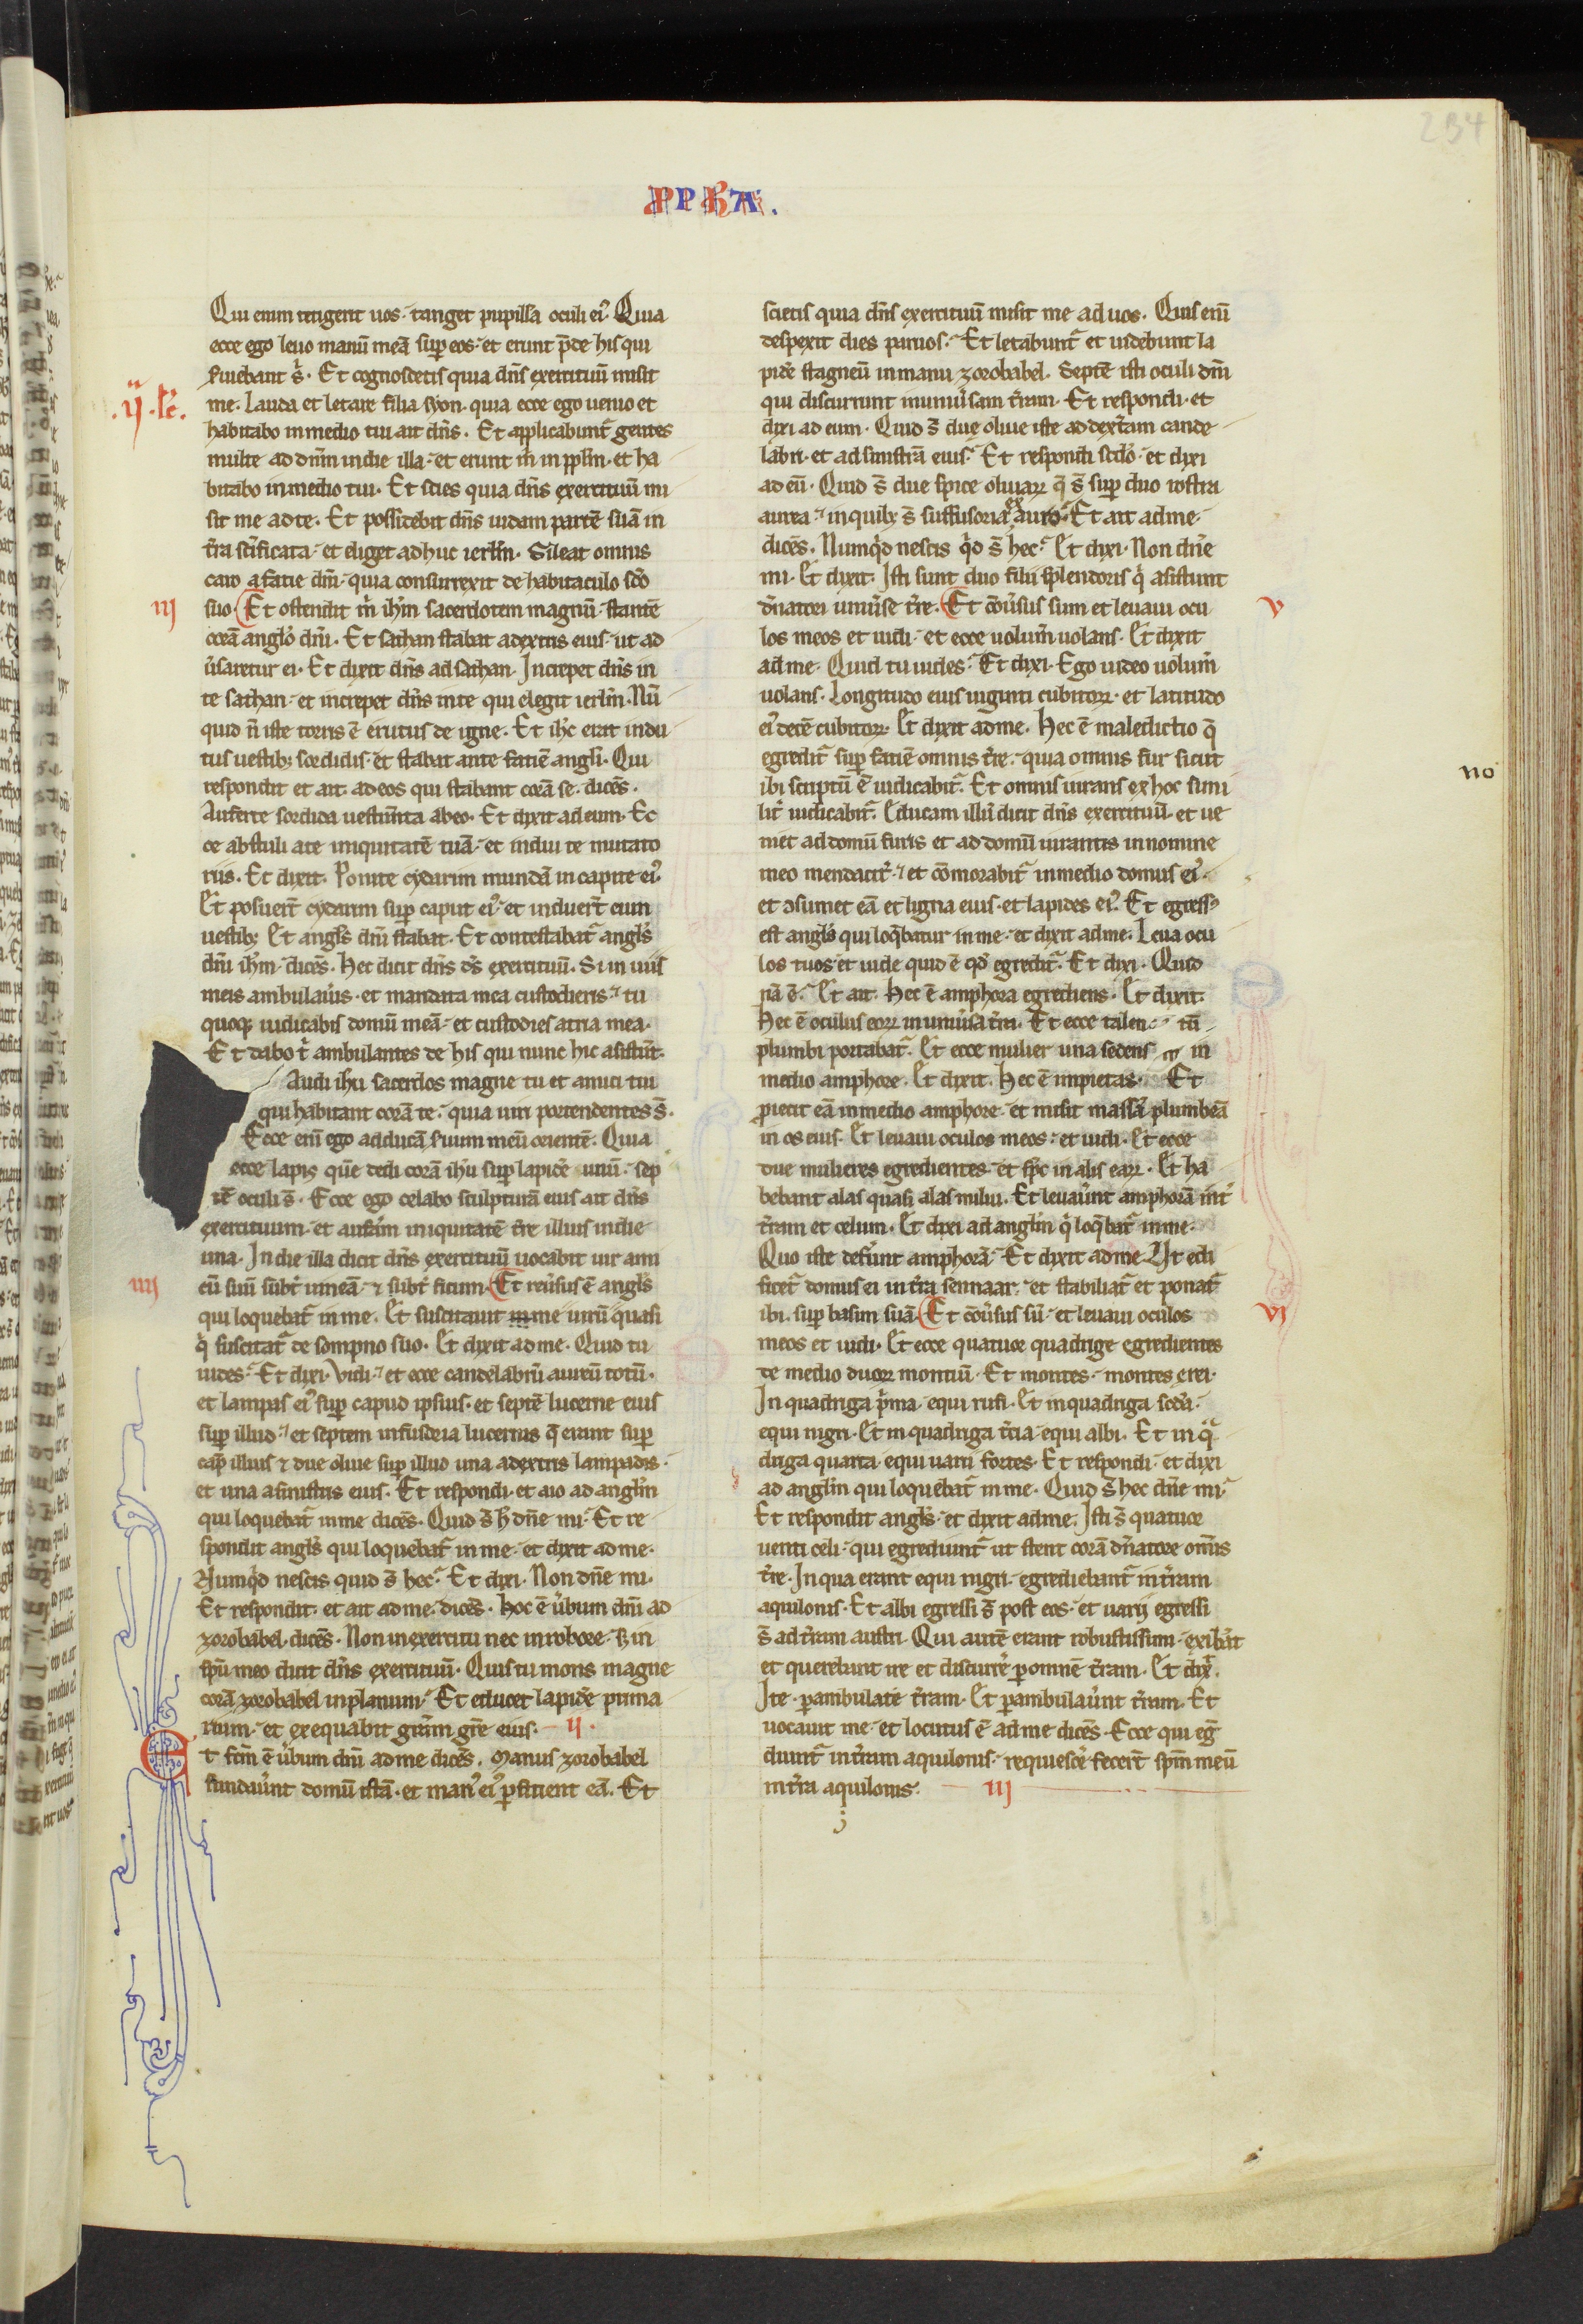 234
PPHA.
Qui enim tetigerit uos. tanget pupillā oculi ei9 Quia
ecce ego leuo manū meā sup eos. et erunt p̄de his qui
seruiebant s͛. Et cognoscetis quia dn̄s exercituū misit
.ij. Sc̄.
me. Lauda et letare filia syon. quia ecce ego uenio et
habitabo in medio tui ait dn̄s. Et applicabunt͛ gentes
multe ad dn̄m in die illa. et erunt m͛ in pplm̄. et ha
bitabo in medio tui. Et scies quia dn̄s exercituū mi
sit me ad te. Et possidebit dn̄s iudam partē suā in
t͛ra sc̄ificata. et eliget adhuc ierlm̄. Sileat omnis
caro a facie dn̄i. quia consurrexit de habitaculo sc̄o
iij
suo. Et ostendit m͛ ih̄m sacerdotem magnū. stantē
corā anglo dn̄i. Et sathan stabat a dextris eius. ut ad
u͛saretur ei. Et dixit dn̄s ad sathan. Increpet dn̄s in
te sathan. et increpet dn̄s in te qui elegit ierlm̄. Nū
quid n̄ iste torris ē erutus de igne. Et ih̄c erat indu
tus uestib; sordidis. et stabat ante faciē angli. Qui
respondit et ait. ad eos qui stabant corā se. dicēs.
Auferte sordida uestim̄ta ab eo. Et dixit ad eum. Ec
ce abstuli a te iniquitatē tuā. et indui te mutato
riis. Et dixit. Ponite cydarim mundā in capite ei9
Et posuer̄t cydarim sup caput ei9. et induer̄t eum
uestib; Et angl̄s dn̄i stabat. Et contestabat͛ angl̄s
dn̄i ih̄m. dicēs. Hec dicit dn̄s d̄s exercituū. Si in uiis
meis ambulau͛is. et mandata mea custodieris. tu
quoq; iudicabis domū meā. et custodies atria mea.
Et dabo t͛ ambulantes de his qui nunc hic asistūt.
Audi ihu sacerdos magne tu et amici tui
qui habitant corā te. quia uiri portendentes s̄.
Ecce eni ego adducā seruum meū orientē. Quia
ecce lapis quē dedi corā ihu sup lapidē unū. sep
tē oculi s̄. Ecce ego celabo sculpturā eius ait dn̄s
exercituum. et auferam iniquitatē t͛re illius in die
una. In die illa dicit dn̄s exercituū uocabit uir ami
iiij
cū suū subt͛ uineā. & subt͛ ficum. Et reu͛sus ē angl̄s
qui loquebat͛ in me. Et suscitauit me uirū quasi
q͛ suscitat͛ de sompno suo. Et dixit ad me. Quid tu
uides. Et dixi. Vidi. et ecce candelabrū aureū totū.
et lampas ei9 sup capud ipsius. et septē lucerne eius
sup illud. et septem infusoria lucernis q̄ erant sup
cap̄ illius & due oliue sup illud una a dextris lampadis.
et una a sinistris eius. Et respondi. et aio ad anglm̄
qui loquebat͛ in me dicēs. Quid s̄ h̄ dn̄e mi. Et re
spondit angl̄s qui loquebat͛ in me. et dixit ad me.
Numqd̄ nescis quid s̄ hec. Et dixi. Non dn̄e mi.
Et respondit. et ait ad me. dicēs. Hoc ē u͛bum dn̄i ad
zorobabel dicēs. Non in exercitu nec in robore. s; in
spū meo dicit dn̄s exercituū. Quis tu mons magne
corā zorobabel in planum. Et educet lapidē prima
rium. et exequabit grām gr̄e eius. ij.
Et fcm̄ ē u͛bum dn̄i ad me dicēs. Manus zorobabel
fundau͛unt domū istā. et man9 ei9 pficient eā. Et
scietis quia dn̄s exercituū misit me ad uos. Quis eni
despexit dies paruos. Et letabunt͛ et uidebunt la
pidē stagneū in manu zorobabel. Septē isti oculi dn̄i
qui discurrunt in uniu͛sam t͛ram. Et respondi. et
dixi ad eum. Quid s̄ due oliue iste ad dext͛am cande
labri. et ad sinistrā eius. Et respondi sc̄do. et dixi
ad eū. Quid s̄ due spice oliuarꝝ q̄ s̄ sup duo rostra
aurea. in quib; s̄ suffusoria ex auro. Et ait ad me.
dicēs. Numqd̄ nescis qd̄ s̄ hec. Et dixi. Non dn̄e
mi. Et dixit. Isti sunt duo filii splendoris q͛ asistunt
v
dn̄atori uniu͛se t͛re. Et cōu͛sus sum et leuaui ocu
los meos et uidi. et ecce uolum̄ uolans. Et dixit
ad me. Quid tu uides. Et dixi. Ego uideo uolum̄
uolans. Longitudo eius uiginti cubitorꝝ. et latitudo
ei9 decē cubitorꝝ. Et dixit ad me. Hec ē maledictio q̄
egredit͛ sup faciē omnis t͛re. quia omnis fur sicut
no
ibi scriptū ē iudicabit͛. Et omnis iurans ex hoc simi
lit͛ iudicabit͛. Educam illud dicit dn̄s exercituū. et ue
niet ad domū furis et ad domū iurantis in nomine
meo mendacit͛. et cōmorabit͛ in medio domus ei9.
et ↄsumet eā et ligna eius. et lapides ei9. Et egress9
est angl̄s qui loq̄batur in me. et dixit ad me. Leua ocu
los tuos et uide quid ē qd̄ egredit͛. Et dixi. Quid
nā ē. Et ait. Hec ē amphora egrediens. Et dixit.
Hec ē oculus eorꝝ in uniu͛sa t͛ra. Et ecce talen tū
plumbi portabat͛. Et ecce mulier una sedens in
medio amphore. Et dixit. Hec ē impietas. Et
piecit eā in medio amphore. et misit massā plumbeā
in os eius. Et leuaui oculos meos. et uidi. Et ecce
due mulieres egredientes. et spc̄ in alis earꝝ. Et ha
bebant alas quasi alas milui. Et leuau͛unt amphorā int͛
t͛ram et celum. Et dixi ad anglm̄ q͛ loq̄bat͛ in me.
Quo iste defer̄unt amphorā. Et dixit ad me. Ut edi
ficet͛ domus ei in t͛ra sennaar. et stabiliat͛ et ponat͛
vi
ibi. sup basim suā. Et cōu͛sus sū. et leuaui oculos
meos et uidi. Et ecce quatuor quadrige egredientes
de medio duorꝝ montiū. Et montes. montes erei.
In quadriga p͛ma. equi rufi. Et in quadriga sc̄da.
equi nigri. Et in quadriga t͛cia. equi albi. Et in q͛
driga quarta. equi uarii fortes. Et respondi. et dixi
ad anglm̄ qui loquebat͛ in me. Quid s̄ hec dn̄e mi.
Et respondit angl̄s. et dixit ad me. Isti s̄ quatuor
uenti celi. qui egrediunt͛ ut stent corā dn̄atore omīs
t͛re. In qua erant equi nigri. egrediebant͛ in t͛ram
aquilonis. Et albi egressi s̄ post eos. et uarij egressi
s̄ ad t͛ram austri. Qui autē erant robustissimi. exiba͛t
et querebant ire et discurre͛ p omnē t͛ram. Et dix͛.
Ite. pambulate t͛ram. Et pambulau͛unt t͛ram. Et
uocauit me. et locutus ē ad me dicēs. Ecce qui eg͛
diunt͛ in t͛ram aquilonis. requiesce͛ fecer̄t spm̄ meū
in t͛ra aquilonis. iij